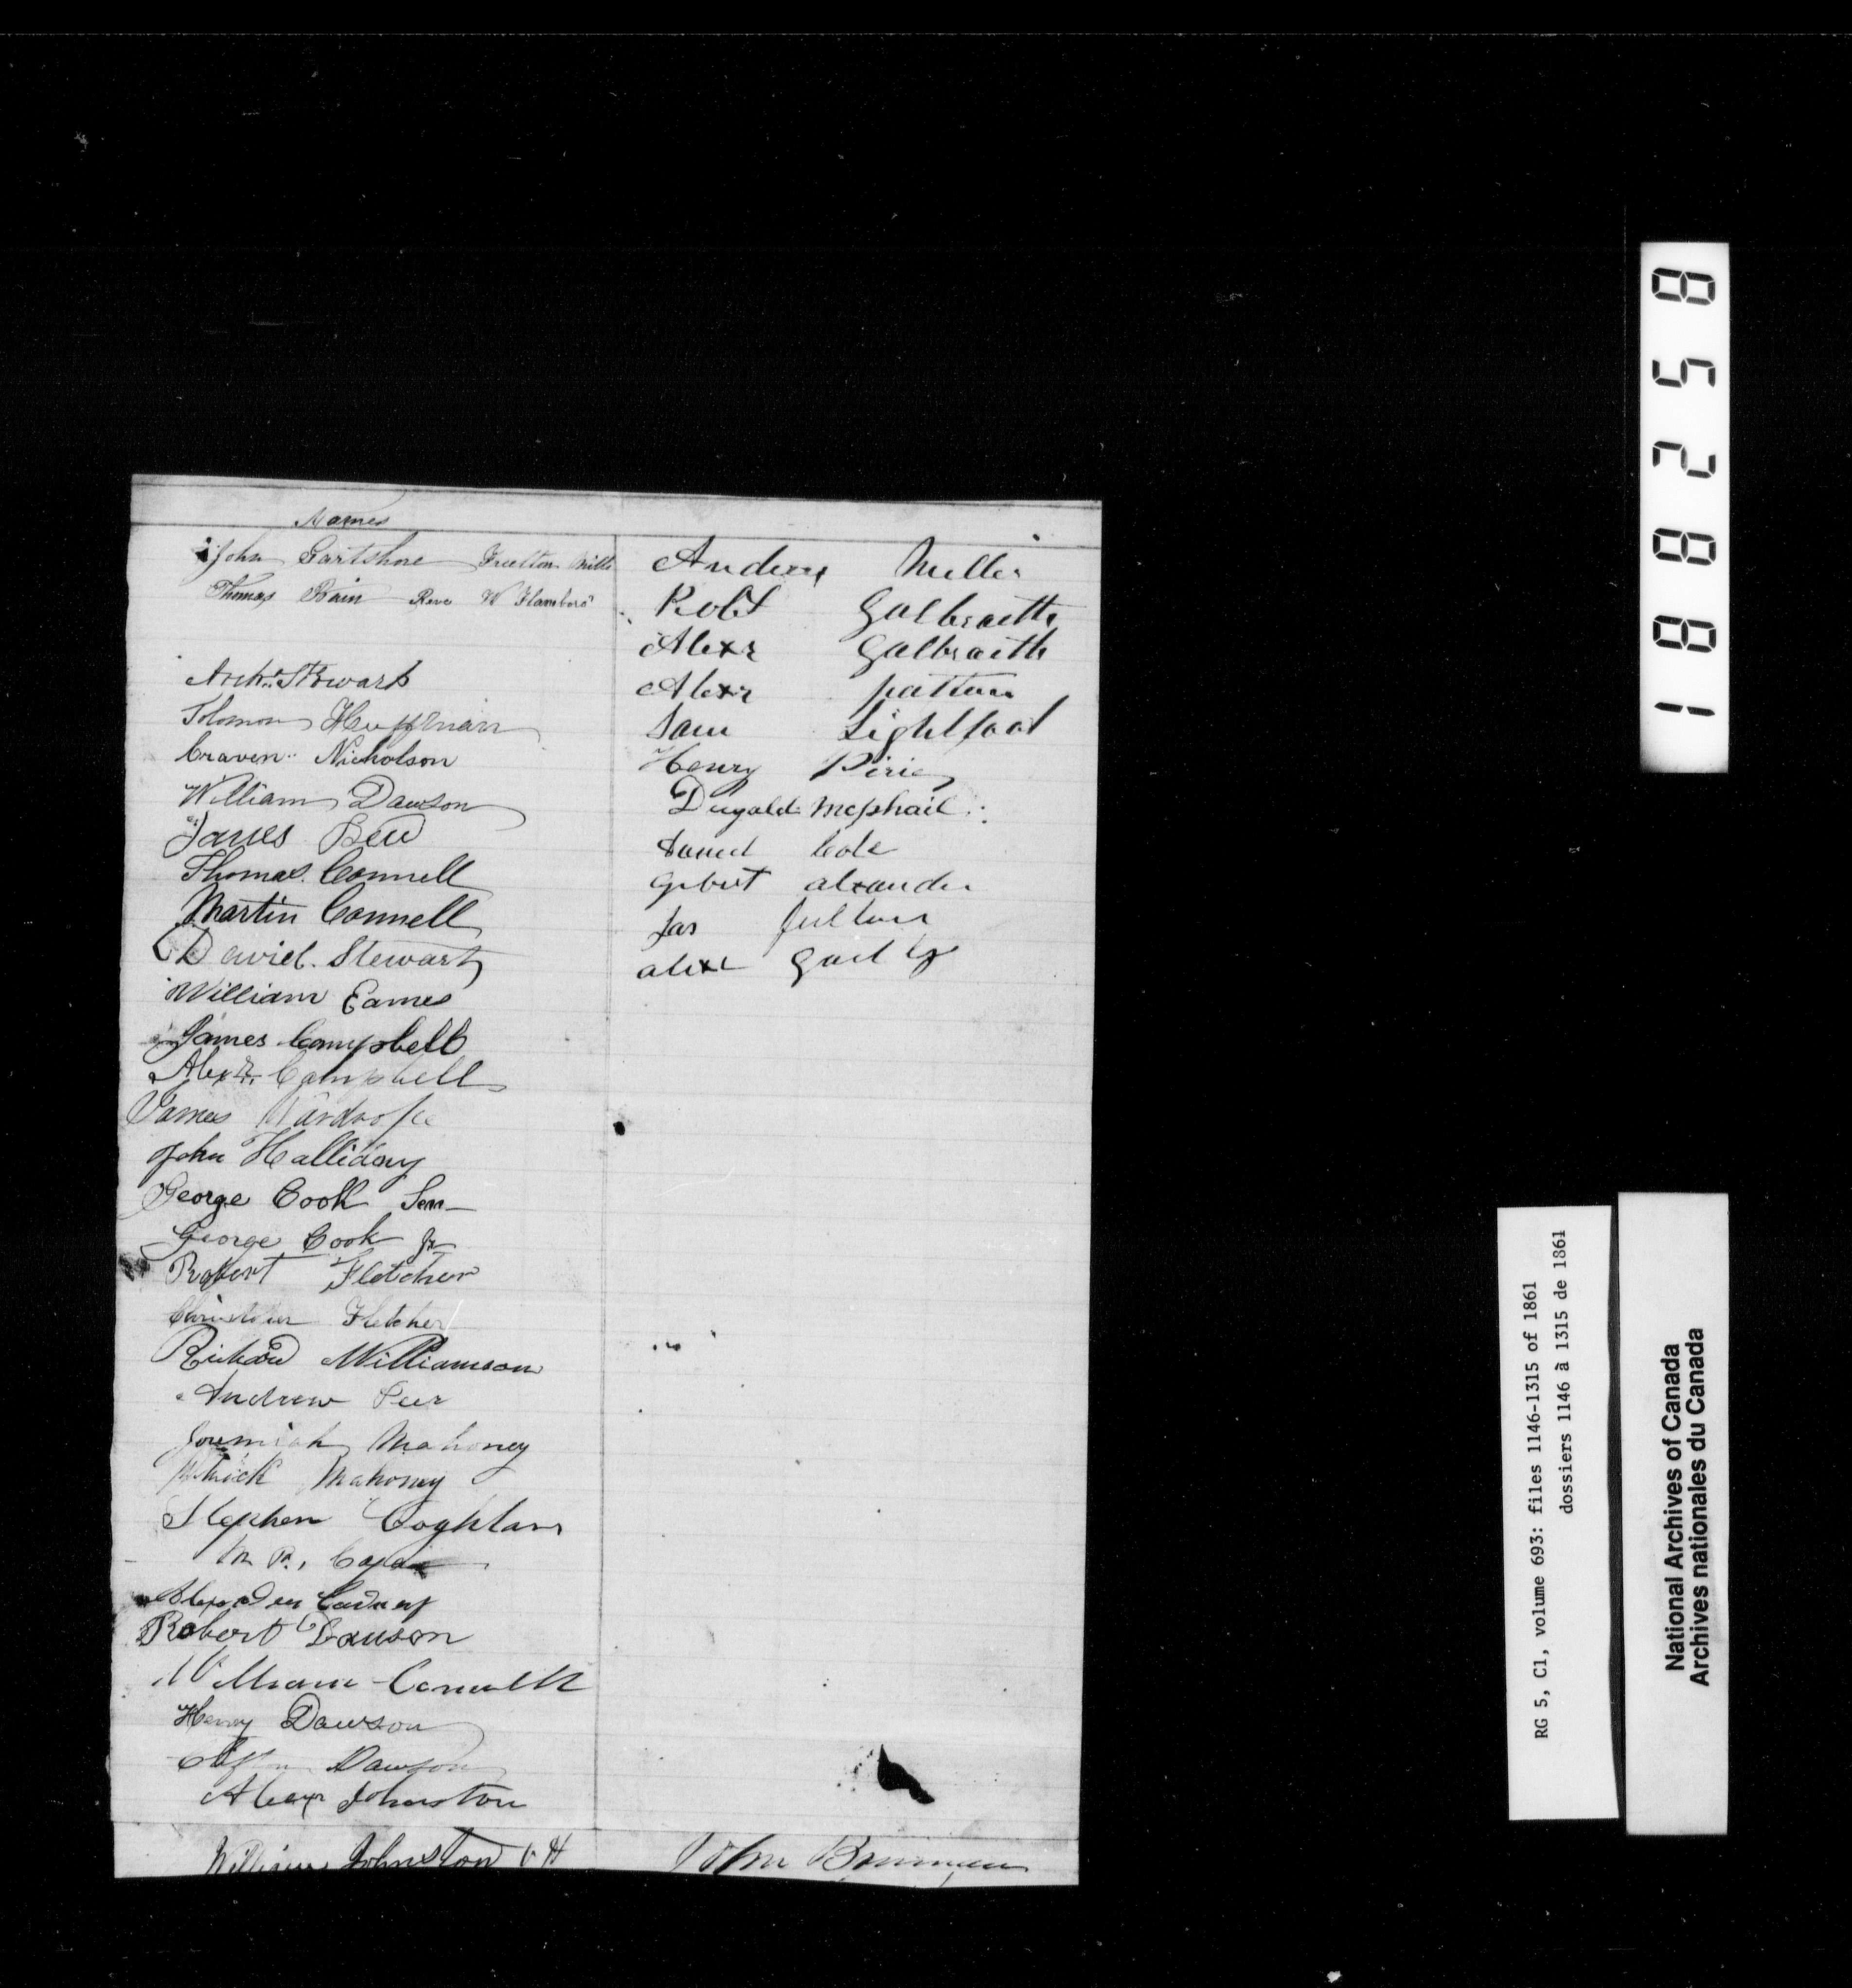 Names
John Gartshore Freelton Mills
Thomas Bain Reve W Flamboro
Archd. Stewart
Solomon Huffman
Craven Nicholson
William Dawson
James Bew
Thomas Connell
Martin Connell
David Stewart
William Eames
James Campbell
Alexr. Campbell
James Wardrope
John Halliday
George Cook Sen
George Cook Jr
Robert Fletcher
Christopher Fletcher
Richard Williamson
Andrew Peer
Jeremiah Mahoney
Patrick Mahoney
Stephen Coghlan
Robert Dawson
William
Henry Dawson
Dawson
Alexr Johnston
William Johnston
Andrew Miller
Robt Galbraith
Alexr Galbraith
Alexr patton
Sam Lightfoot
Henry Pirie
Dugald McPhail
Cole
alxander
Jas fulton
alexr
John
18825 8
RG 5, C1, volume 693: files 1146-1315 of 1861
dossiers 1146 à 1315 de 1861
National Archives of Canada
Archives nationales du Canada